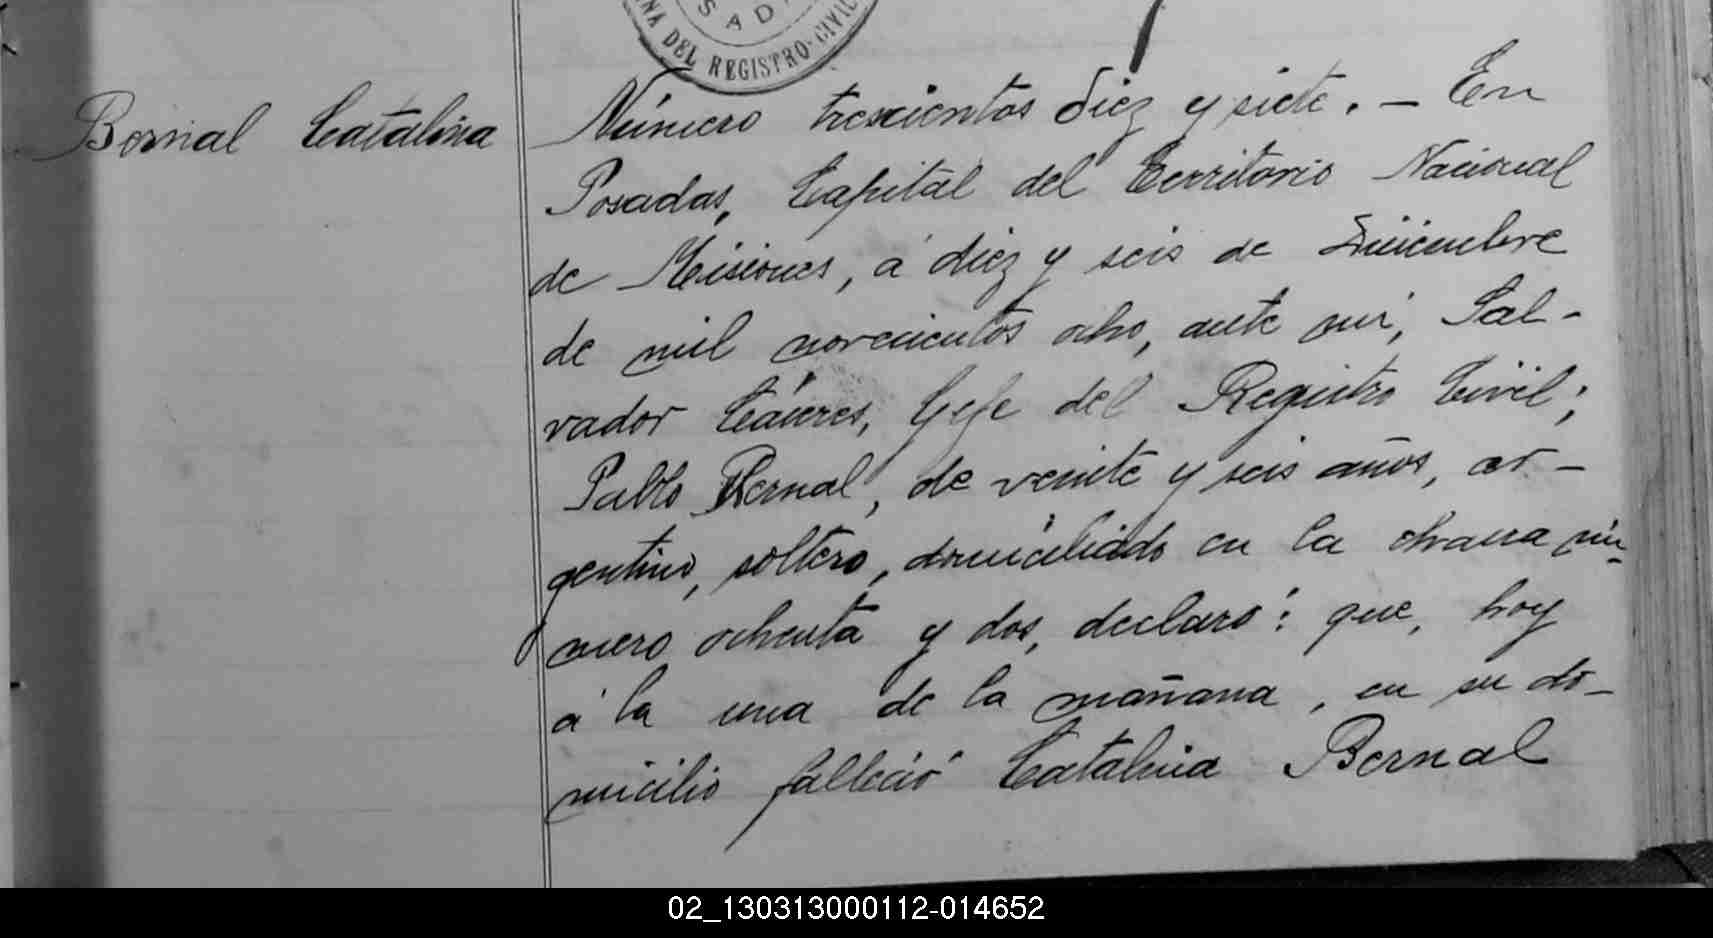 SAD
NA DEL REGISTRO-CIVIL
Bernal Catalina
Número trescientos diez y siete. - En
Posadas, Capital del Territorio Nacional
de Misiones, á diez y seis de Diciembre
de mil novecientos ocho, ante mi, Sal-
vador Cáceres, Gefe del Registro Civil;
Pablo Bernal, de veinte y seis años, ar-
gentino, soltero, domiciliado en la chacra nú-
mero ochenta y dos, declaró: que, hoy
á la una de la mañana, en su do-
micilio falleció Catalina Bernal
02_130313000112-014652